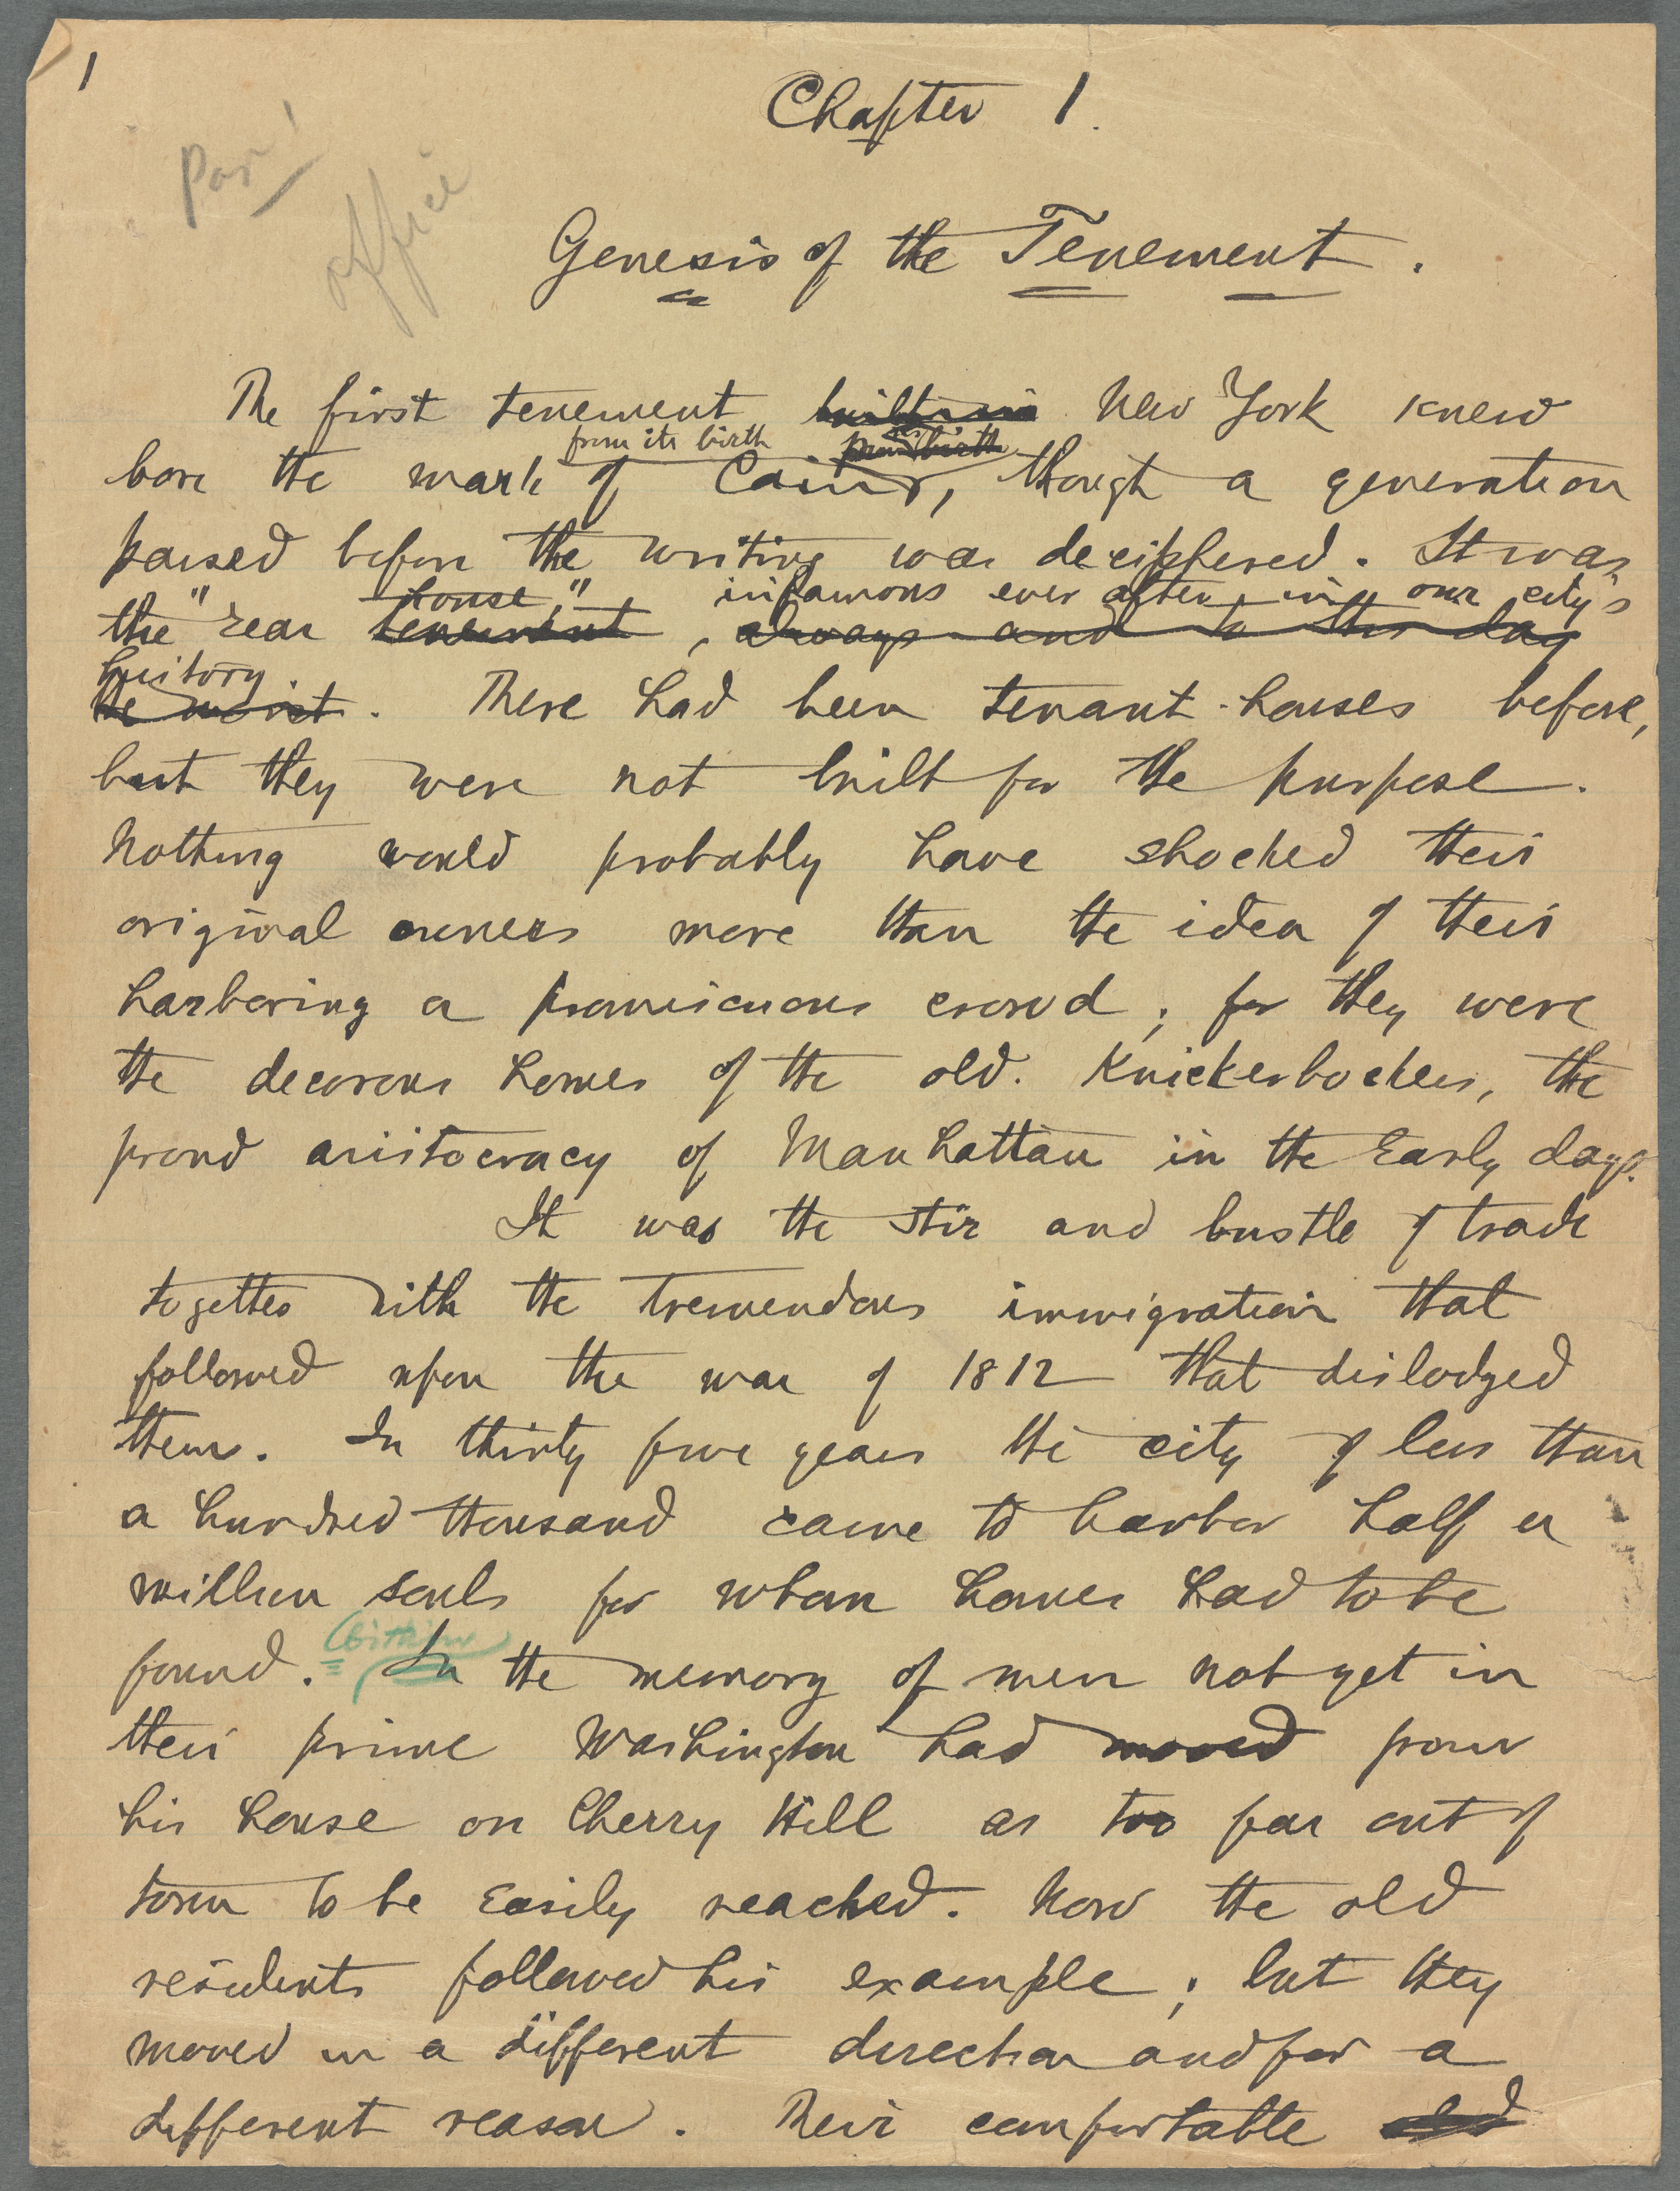 1
Chapter 1.
office
Genesis of the Tenement.
The first tenement built in New York knew
from its birth from its birth
bore the mark of Cain, though a generation
passed before the writing was deciphered. It was
house," infamous ever after in our city's
the "rear tenement, always and to this day
history.
the worst. There had been tenant-houses before,
but they were not built for the purpose.
Nothing would probably have shocked their
original owners more than the idea of their
harboring a promiscuous crowd; for they were
the decorous homes of the old. Knickerbockers, the
proud aristocracy of Manhattan in the early days.
It was the stir and bustle of trade
together with the tremendous immigration that
followed upon the war of 1812 that dislodged
them. In thirty five years the city of less than
a hundred thousand came to harbor half a
million souls for whom homes had to be
Within
found. In the memory of men not yet in
their prime Washington had moved from
his house on Cherry Hill as too far out of
town to be easily reached. Now the old
residents followed his example; but they
moved in a different direction and for a
different reason. Their comfortable old